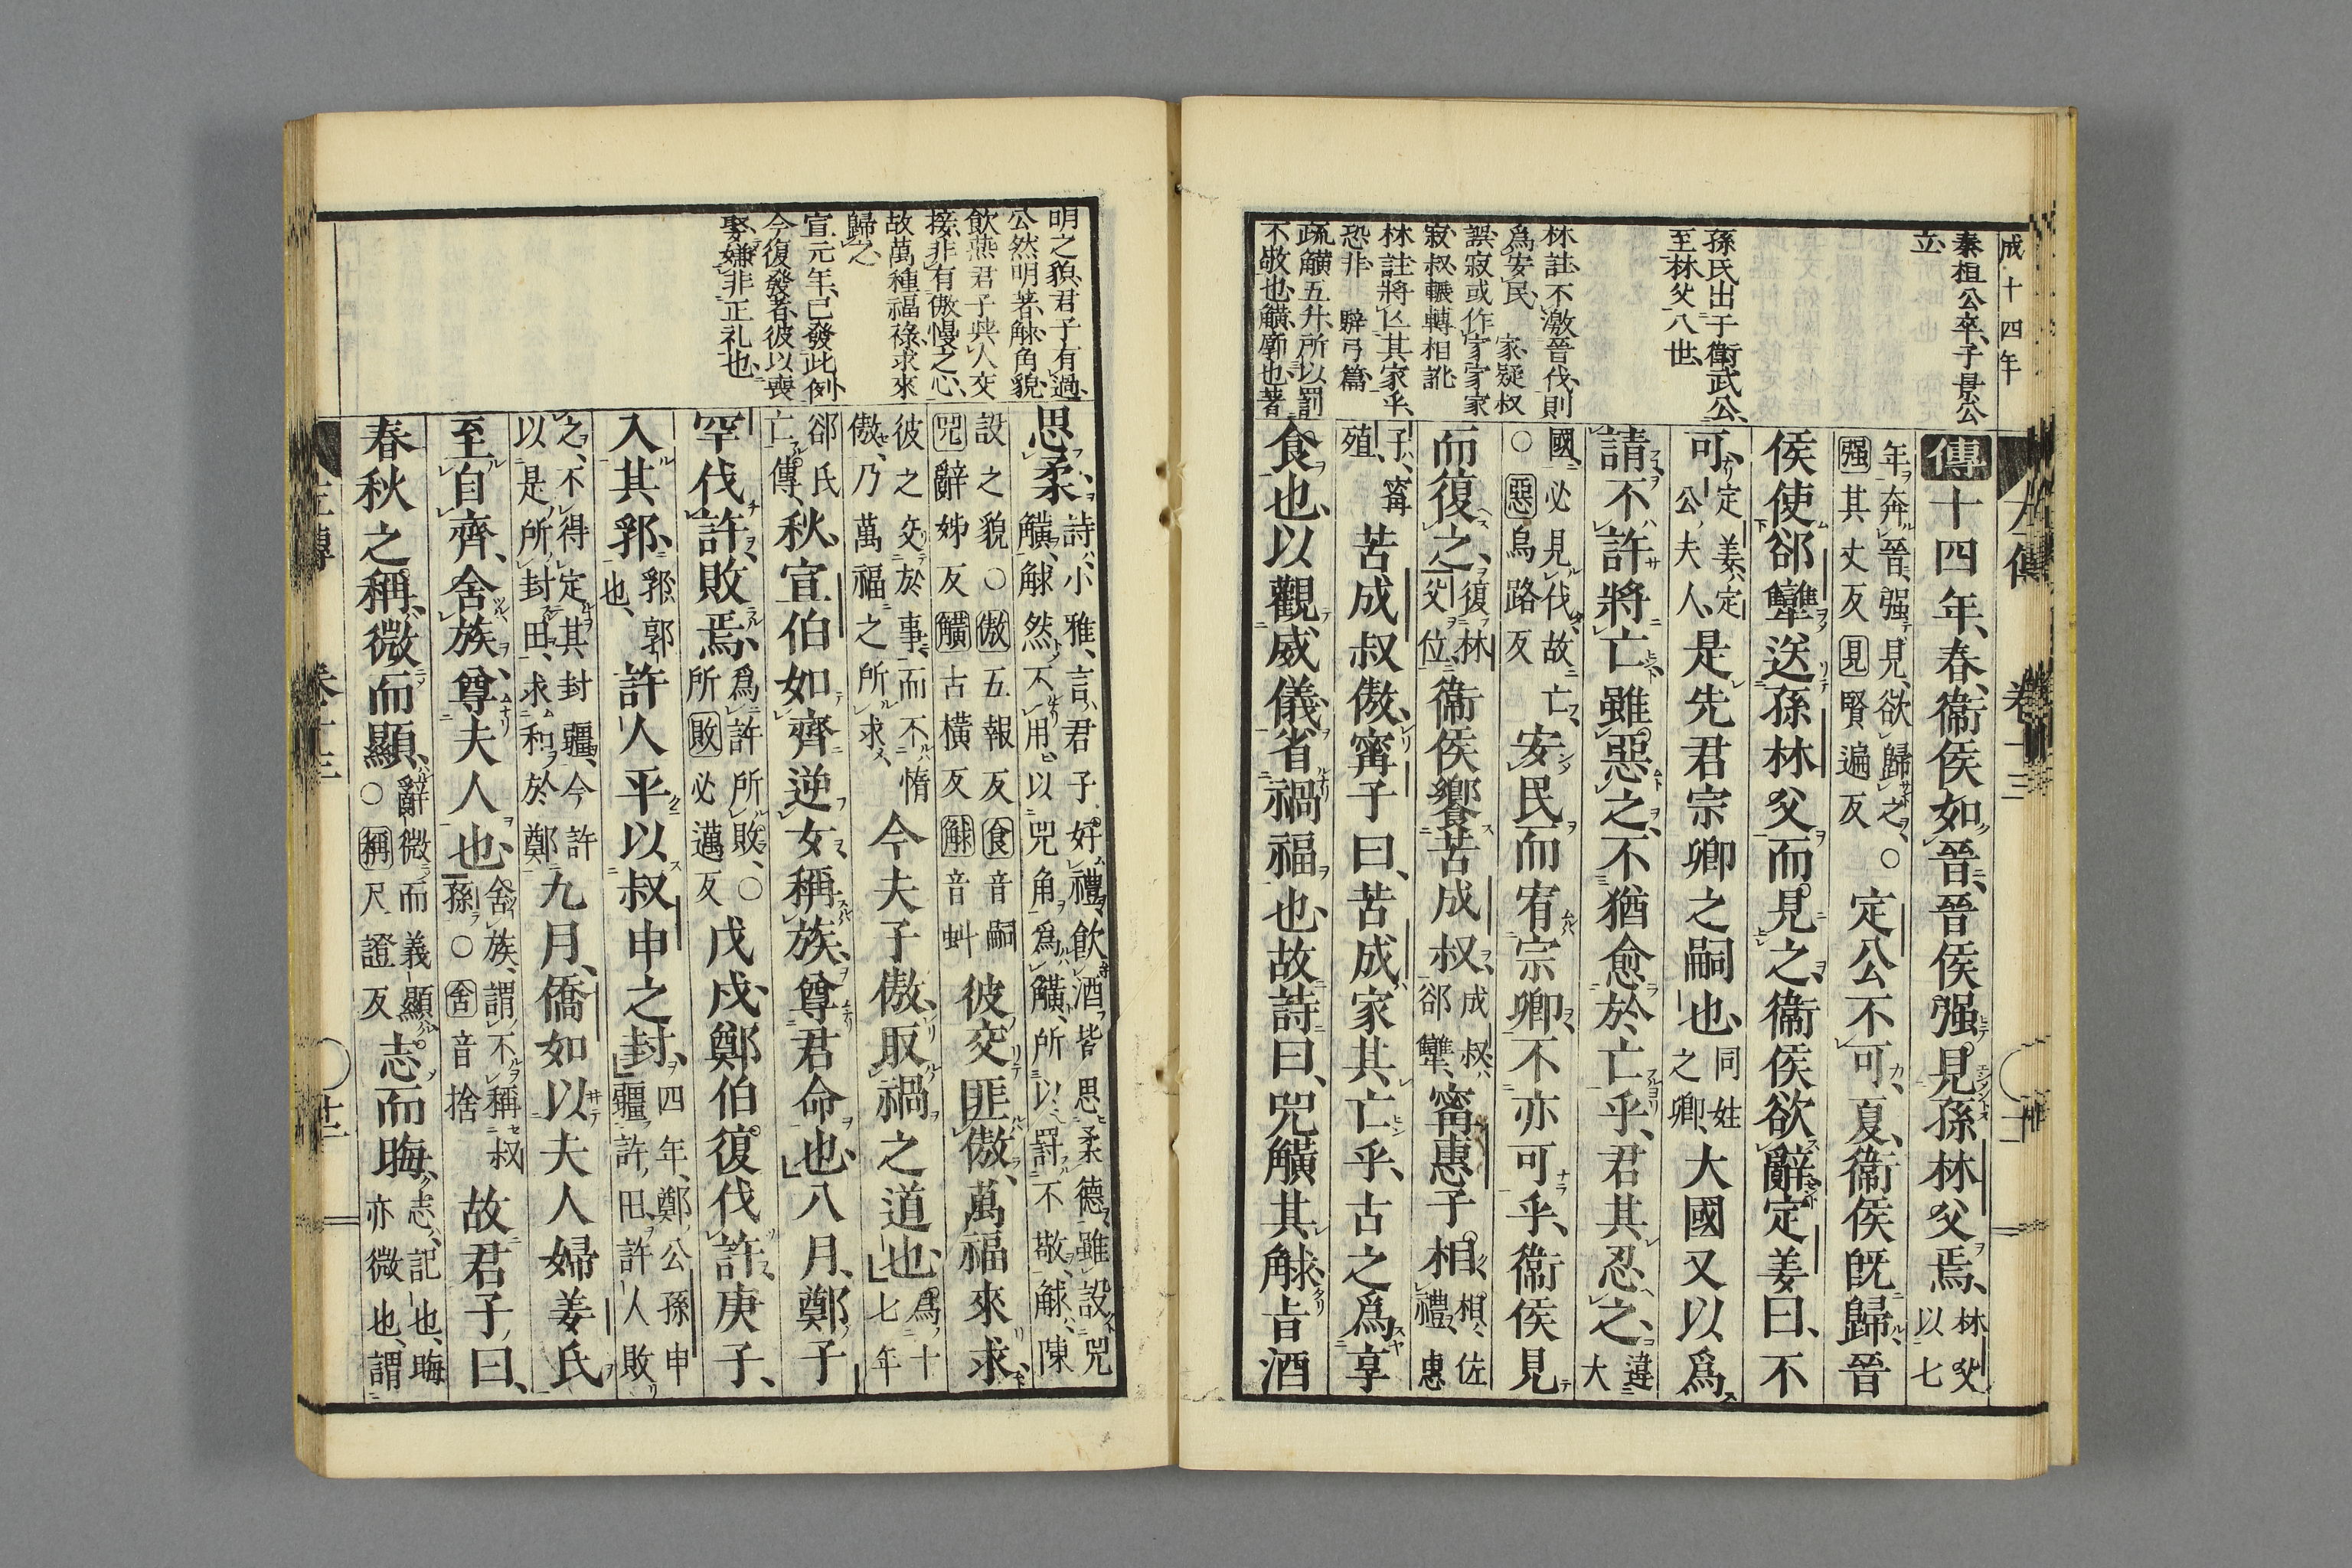 成十四年
秦桓公卒、子景公
立
孫氏出于衛武公、
至林父八世、
林註、不激晉伐、則
爲安民 家疑叔
誤寂或作家家家
寂叔輾轉相訛
林註將亾其家乎、
恐非 騂弓篇
疏觵五升、所以罰
不敬也、觵廓也著
傳十四年、春、衞侯如晉、晉侯强見孫林父焉、林父以七
年奔晉、强見、欲歸之、○强其丈反見賢遍反定公不可、夏、衞侯既歸、晉
侯使郤犫送孫林父而見之、衞侯欲辭、定姜曰、不
可、定姜、定公夫人、是先君宗卿之嗣也、同姓之卿、大國又以爲
請、不許、將亡、雖惡之、不猶愈於亡乎、君其忍之、違大
國、必見伐、故亡、○惡烏路反安民而宥宗卿、不亦可乎、衞侯見
而復之、復林父位衞侯饗苦成叔、成叔、郤犫、甯惠子相、相、佐禮、惠
子、甯殖苦成叔傲、甯子曰、苦成家其亡乎、古之爲享
食也、以觀威儀、省禍福也、故詩曰、兕觵其觩、旨酒
左傳 卷十三
明之貌、君子有過、
公然明著、觩、角貌
飲燕君子與人交
接、非有傲慢之心、
故萬種福祿求來
歸之
宣元年、已發此例
今復發者、彼以喪
娶、嫌非正礼也、
思柔、詩小雅、言、君子好禮、飲酒皆思柔德、雖設兕觵、觩然不用、以兕角爲觵、所以罰不敬、觩、陳
設之貌○傲五報反食音嗣兕辭姊反觵古橫反觩音虯彼交匪傲、萬福來求、
彼之交於事、而不惰傲、乃萬福之所求、今夫子傲、取禍之道也、爲十七年
郤氏亡傳、秋、宣伯如齊逆女、稱族、尊君命也、八月、鄭子
罕伐許、敗焉、爲許所敗、○敗必邁反戊戌、鄭伯復伐許、庚子、
入其郛、郛、郭也、許人平以叔申之封、四年、鄭公孫申疆許田、許人敗
之、不得定其封疆、今許以是所封田、求和於鄭九月、僑如以夫人婦姜氏
至自齊、舍族、尊夫人也、舍族、謂不稱叔孫○舍音捨故君子曰、
春秋之稱、微而顯、辭微而義顯○稱尺證反志而晦、志、記也、晦亦微也、謂
左傳 卷十三